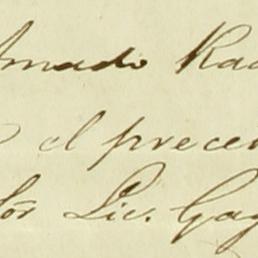 Amado Ra
el precen
Sór Lic. Gay